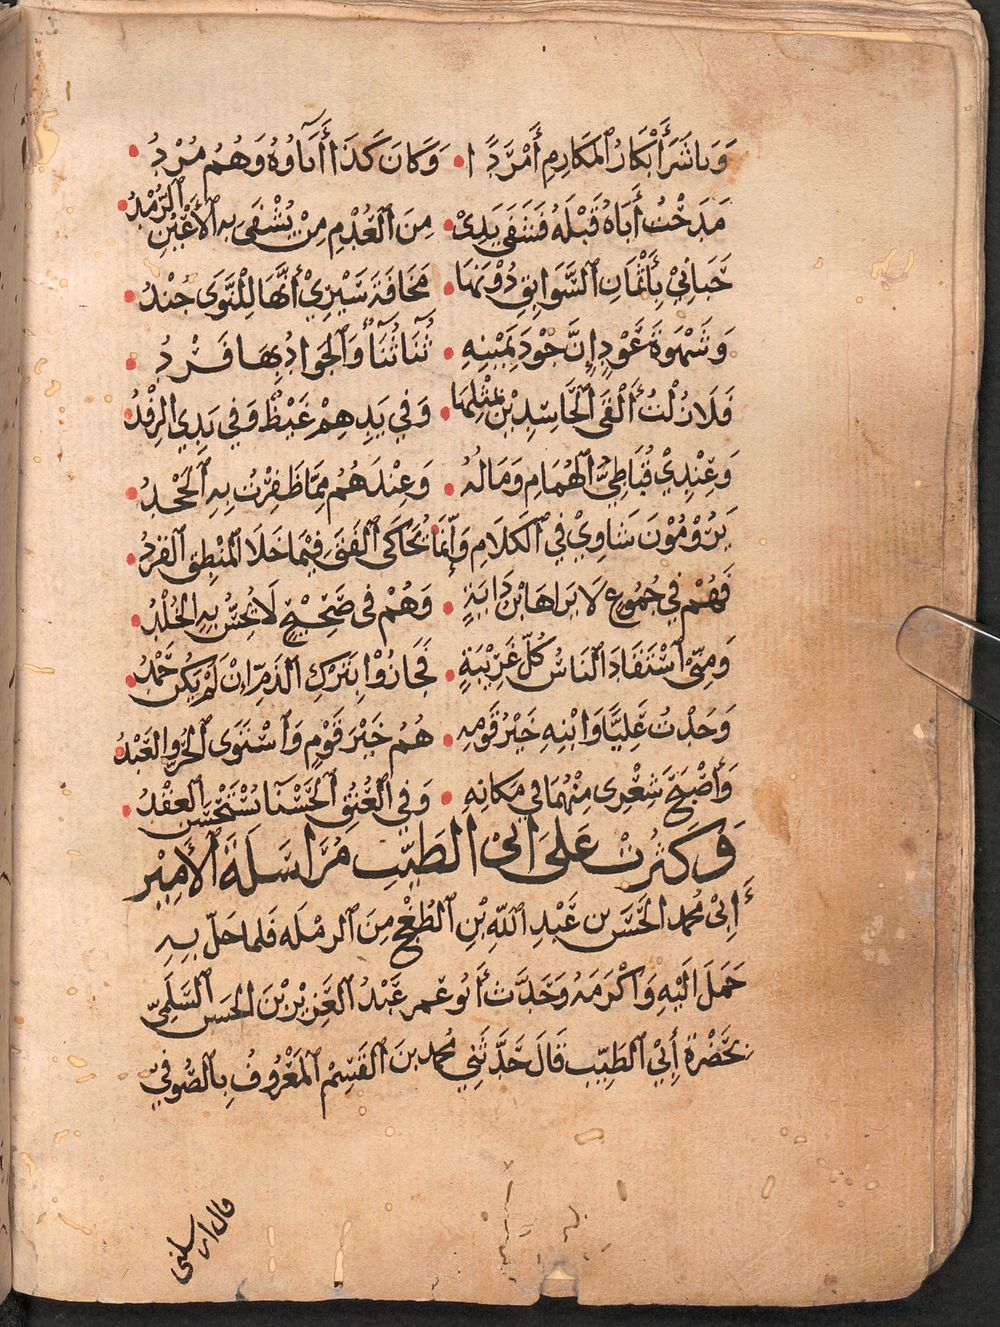 وَبَاشَرَ أَبْكَارَ الْمَكَارِمِ أَمْرَدًا • وَكَانَ كَذَا أَبَاؤُهُ وَهُمُ مُرْدُ •
مَدَحْتُ أَبَاهُ قَبْلَهُ فَشَفَى يَدِيْ • مِنَ الْعُدْمِ مِنْ يُشْفَى بِهِ الْأَعْيُنُ الرُّمْدُ •
حَبَانِيْ بِأَثْمَانِ السَّوَابِقِ دُوْنَهَا • مَخَافَةَ سَيْرِيْ أَنَّهَا لِلنَّوَى جُنْدُ •
وَشَهْوَةَ عَوْدٍ إِنَّ جُوْدَ يَمِيْنِهِ • ثُنَاثُنَاءُ وَالْجَوَادُ بِهَا فَرْدُ •
فَلَا زِلْتُ أَلْقَى الْحَاسِدِيْنَ بِمِثْلِهَا • وَفِي يَدِهِمْ غَيْظٌ وَفِي يَدِي الرِّفْدُ
وَعِنْدِيْ قُبَاطِيُّ الْهُمَامِ وَمَالُهُ • وَعِنْدَهُمُ مِمَّا ظَفِرْتُ بِهِ الْجَحْدُ •
يَرُوْمُوْنَ شَاوِيْ فِي الْكَلَامِ وَإِنَّمَا • يُحَاكَى الْفَتَى فِيْمَا خَلَا الْمَنْطِقِ الْقِرْدُ •
فَهُمْ فِي جُمُوعٍ لَا يَرَاهَا ابْنُ دَايَةٍ • وَهُمْ فِى ضَجِيْجٍ لَا يُحِسُّ بِهِ الْخُلْدُ •
وَمِنِّى اسْتَفَادَ النَّاسُ كُلَّ غَرِيْبَةٍ • فَجَازُوْا بِتَرْكِ الذَّمِّ إِنْ لَمْ يَكُنْ حَمْدُ •
وَجَدْتُ عَلِيًّا وَابْنَهِ خَيْرُ قَوْمِهِ • هُمُ خَيْرُ قَوْمٍ وَاسْتَوَى الْحُرُّ وَالْعَبْدُ •
وَأَصْبَحَ شَعْرِى مِنْهُمَا فِي مَكَانِهِ • وَفِي الْعُنُقِ الْحَسْنَا يُسْتَحْسَنُ الْعِقْدُ •
وَكَثُرَتْ عَلَى ابى الطَيِّبِ مُرَاسَلَةُ الْأَمِيْرِ
أَبِيْ مُحمد الحَسَنِ بن عَبْدِ اللهِ بْنِ الطُّغْجِ مِنَ الرمْلَه فَلما حَلّ بِهِ
حَمَلَ الَيْهِ وَاكْرَمَهُ وَحَدَّثَ أَبُو عمر عَبْدُ العَزِيْزِ بْنُ الحَسَن السُّلَمِيّ
بِحَضْرَةِ أَبِيْ الطَيِّبِ قَالَ حَدَّثَنِي مُحمد بنَ القَسِمْ المَعْرُوفُ بِالصُّوفيّ
قال ارسلنى